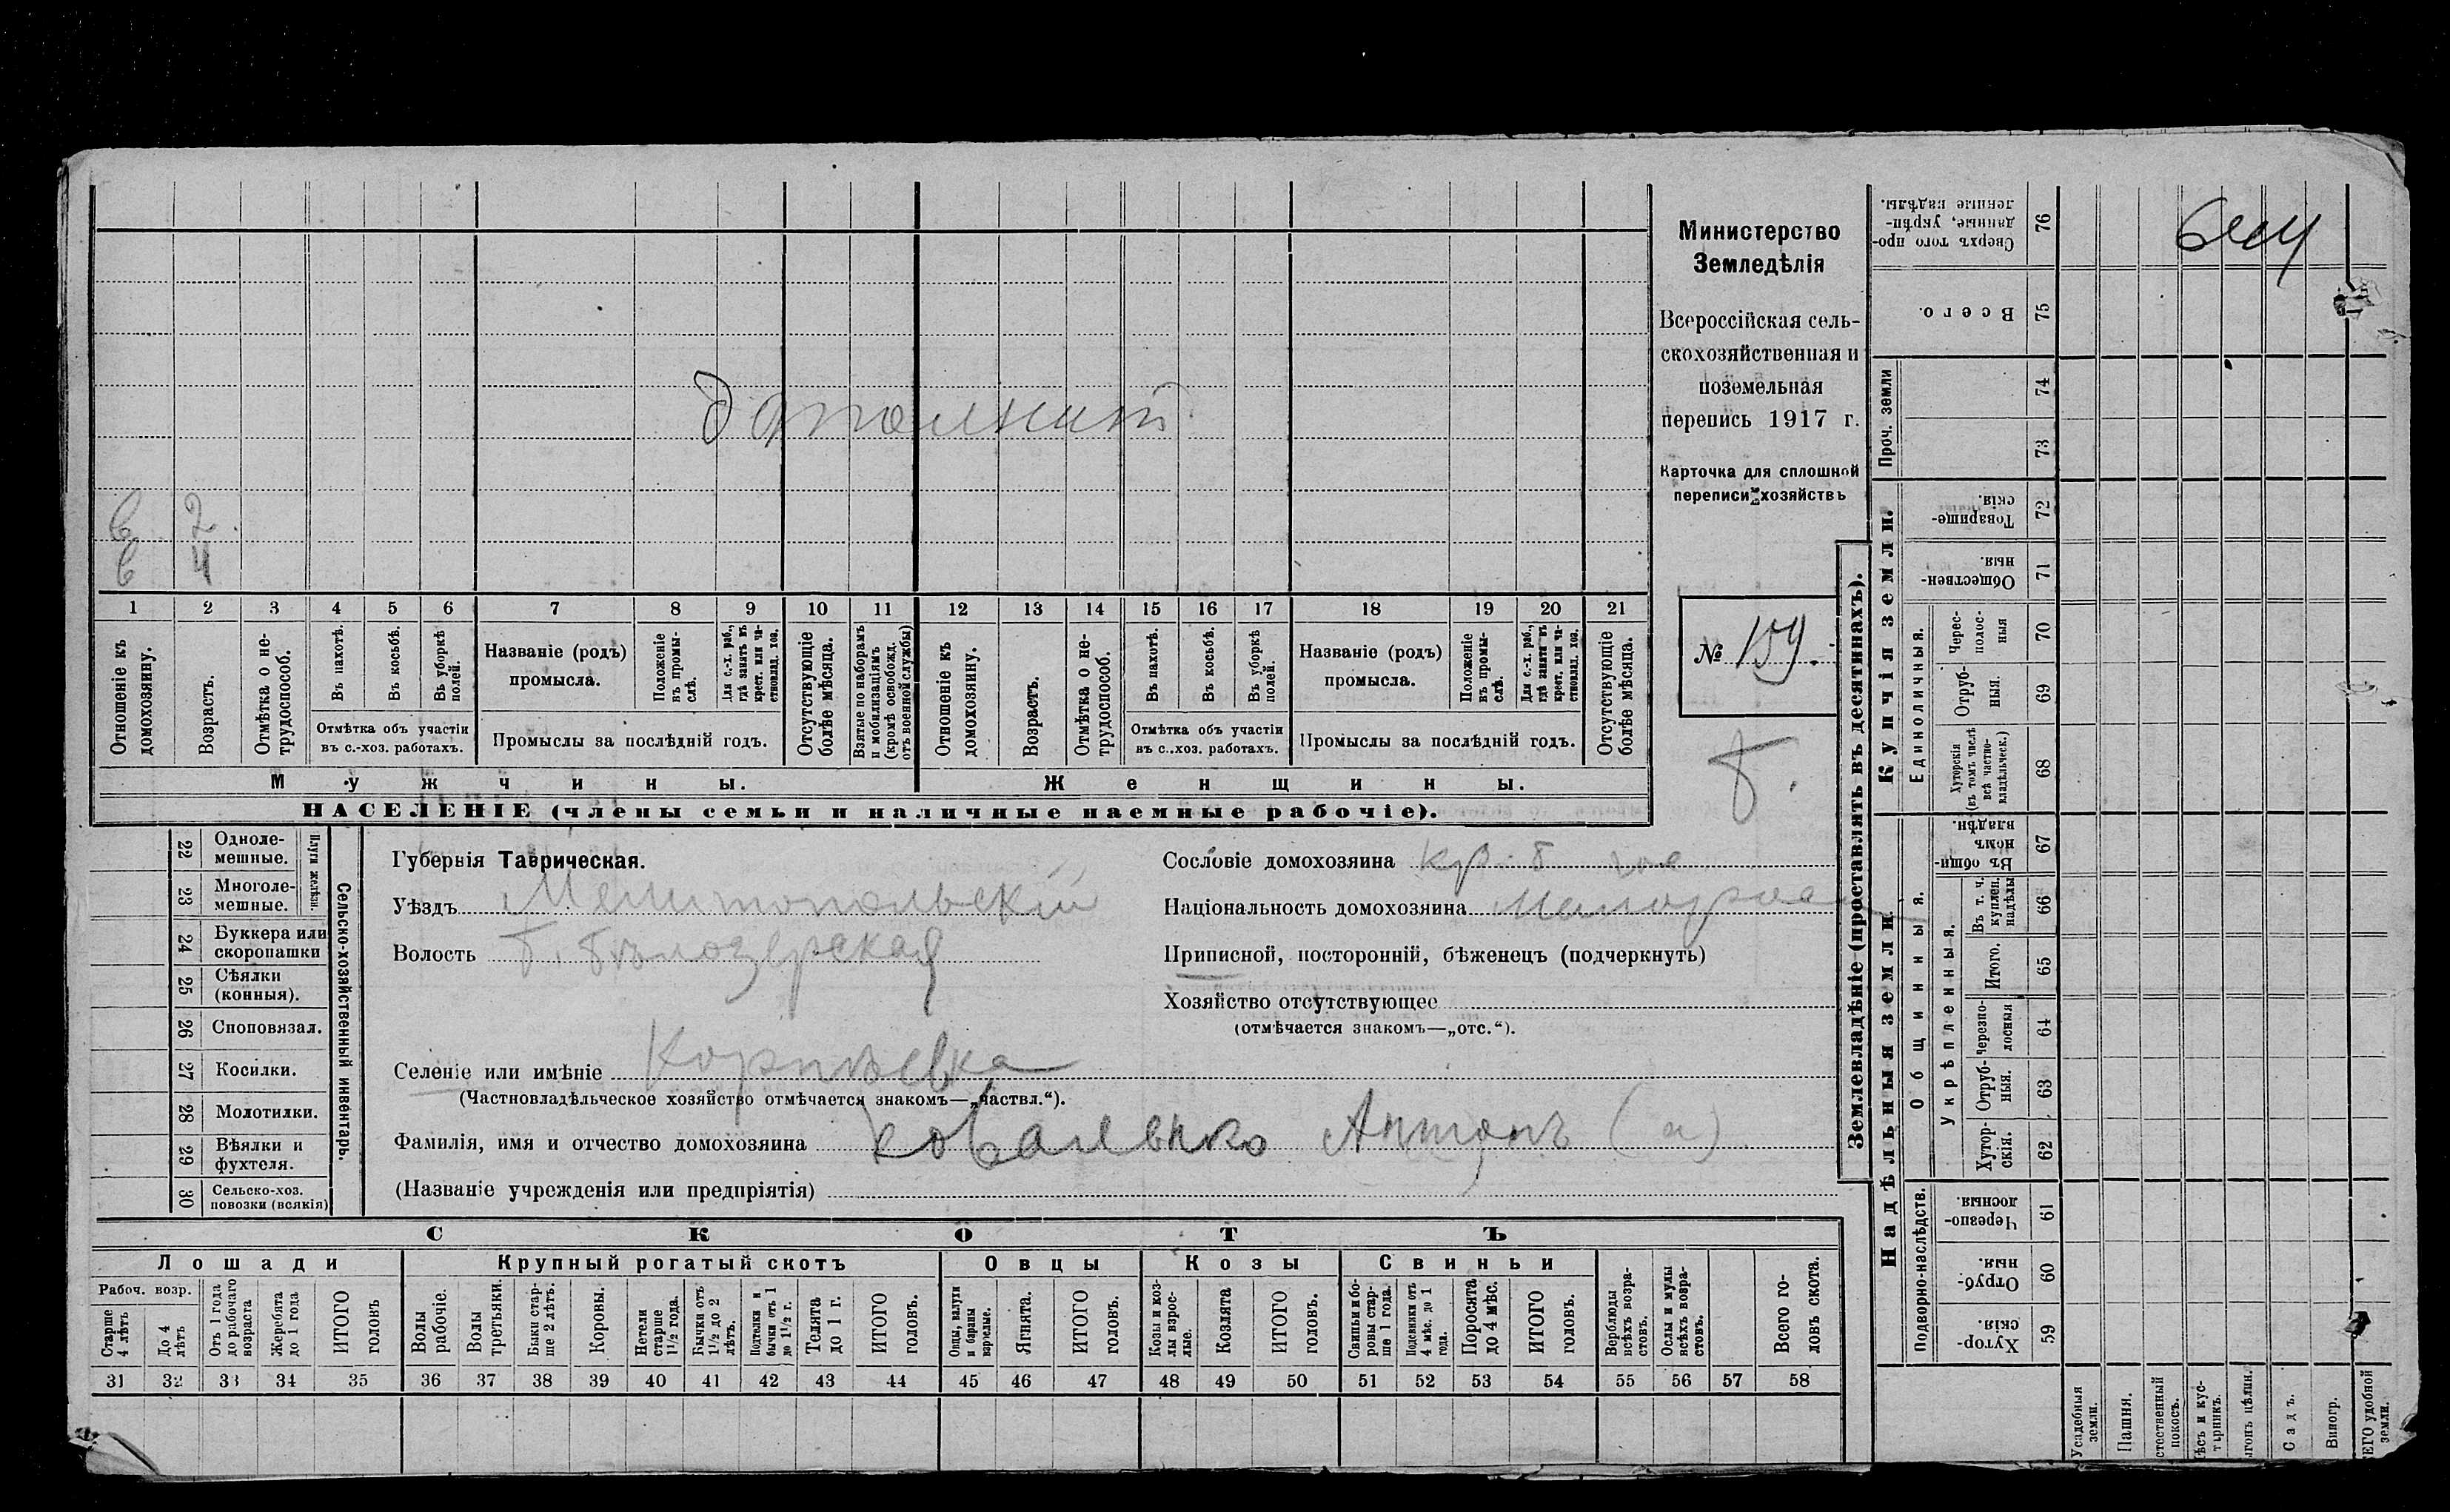 Министерство
Земледѣлія
Всероссійская сель-
скохозяйственная и
поземельная
перепись 1917 г.
Карточка для сплошной
переписи хозяйствъ
№ 159.
в 2
в 4
1 2 3 4 5 6 7 8 9 10 11 12 13 14 15 16 17 18 19 20 21
Отношеніе къ домохозяину.
Возрастъ.
Отмѣтка о не-трудоспособ.
Въ пахотѣ.
Въ косьбѣ.
Въ уборкѣ полей.
Отмѣтка объ участіи
въ с.-хоз. работахъ.
Названіе (родъ)
промысла.
Положеніе въ промы-слѣ.
Для с.-х. раб., гдѣ занятъ въ крест. или ча-стновлад. хоз.
Промыслы за послѣдній годъ.
Отсутствующіе болѣе мѣсяца.
Взятые по наборамъ и мобилизаціямъ (кромѣ освобожд. отъ военной службы)
Отношеніе къ домохозяину.
Возрастъ.
Отмѣтка о не-трудоспособ.
Въ пахотѣ.
Въ косьбѣ.
Въ уборкѣ полей.
Отмѣтка объ участіи
въ с..хоз. работахъ.
Названіе (родъ)
промысла.
Положеніе въ промы-слѣ.
Для с.-х. раб., гдѣ заняты въ крест. или ча-стновлад. хоз.
Промыслы за послѣдній годъ.
Отсутствующіе болѣе мѣсяца.
Мужчины.
Женщины.
НАСЕЛЕНІЕ (члены семьи и наличные наемные рабочіе).
22 Одноле-мешные.
23 Многоле-мешные.
Плуги желѣзн.
24 Буккера или скоропашки
25 Сѣялки (конныя).
26 Сноповязал.
27 Косилки.
28 Молотилки.
29 Вѣялки и фухтеля.
30 Сельско-хоз. повозки (всякія)
Сельско-хозяйственный инвентарь.
Губернія Таврическая.
Уѣздъ Мелитопольскій
Волость Б. Бѣлозерская
Селеніе или имѣніе
(Частновладѣльческое хозяйство отмѣчается знакомъ—„частвл.“).
Фамилія, имя и отчество домохозяина Коваленко Антонъ (а)
(Названіе учрежденія или предпріятія)
Сословіе домохозяина кр.
Національность домохозяина Малоросс
Приписной, посторонній, бѣженецъ (подчеркнуть)
Хозяйство отсутствующее
(отмѣчается знакомъ—„отс.“).
СКОТЪ
Лошади
Крупный рогатый скотъ
Овцы
Козы
Свиньи
Рабоч. возр.
Старше 4 лѣтъ
До 4 лѣтъ
Отъ 1 года до рабочаго возраста
Жеребята до 1 года
ИТОГО головъ
Волы рабочіе.
Волы третьяки.
Быки стар-ше 2 лѣтъ.
Коровы.
Нетели старше 1½ года.
Бычки отъ 1½ до 2 лѣтъ.
Подтелки и бычки отъ 1 до 1½ г.
Телята до 1 г.
ИТОГО головъ.
Овцы, валухи и бараны взрослые.
Ягнята.
ИТОГО головъ.
Козы и коз-лы взрос-лые.
Козлята
ИТОГО головъ.
Свиньи и бо-ровы стар-ше 1 года.
Подсвинки отъ 4 мѣс. до 1 года.
Поросята до 4 мѣс.
ИТОГО головъ.
Верблюды всѣхъ возра-стовъ.
Ослы и мулы всѣхъ возра-стовъ.
Всего го-ловъ скота.
31 32 33 34 35 36 37 38 39 40 41 42 43 44 45 46 47 48 49 50 51 52 53 54 55 56 57 58
Землевладѣніе (проставлять въ десятинахъ).
Надѣльныя земли.
Купчія земли.
Проч. земли
Общинныя.
Укрѣпленныя.
Подворно-наслѣдств.
Единоличныя.
Сверхъ того про-данные, укрѣп-ленные надѣлы. 76
Всего. 75
74
73
Товарище-скія. 72
Обществен-ныя. 71
Черес-полос-ныя 70
Отруб-ныя. 69
Хуторскія (въ томъ числѣ всѣ частно-владѣльческ.) 68
Въ общи-номъ владѣн. 67
Въ т. ч. куплен. надѣлы 66
Итого. 65
Черезпо-лосныя 64
Отруб-ныя. 63
Хутор-скія. 62
Черезпо-лосныя. 61
Отруб-ныя. 60
Хутор-скія. 59
Усадебныя земли.
Пашня.
стественный покосъ.
ѣсъ и кус-тарникъ.
Садъ.
Виногр.
ЕГО удобной земли.